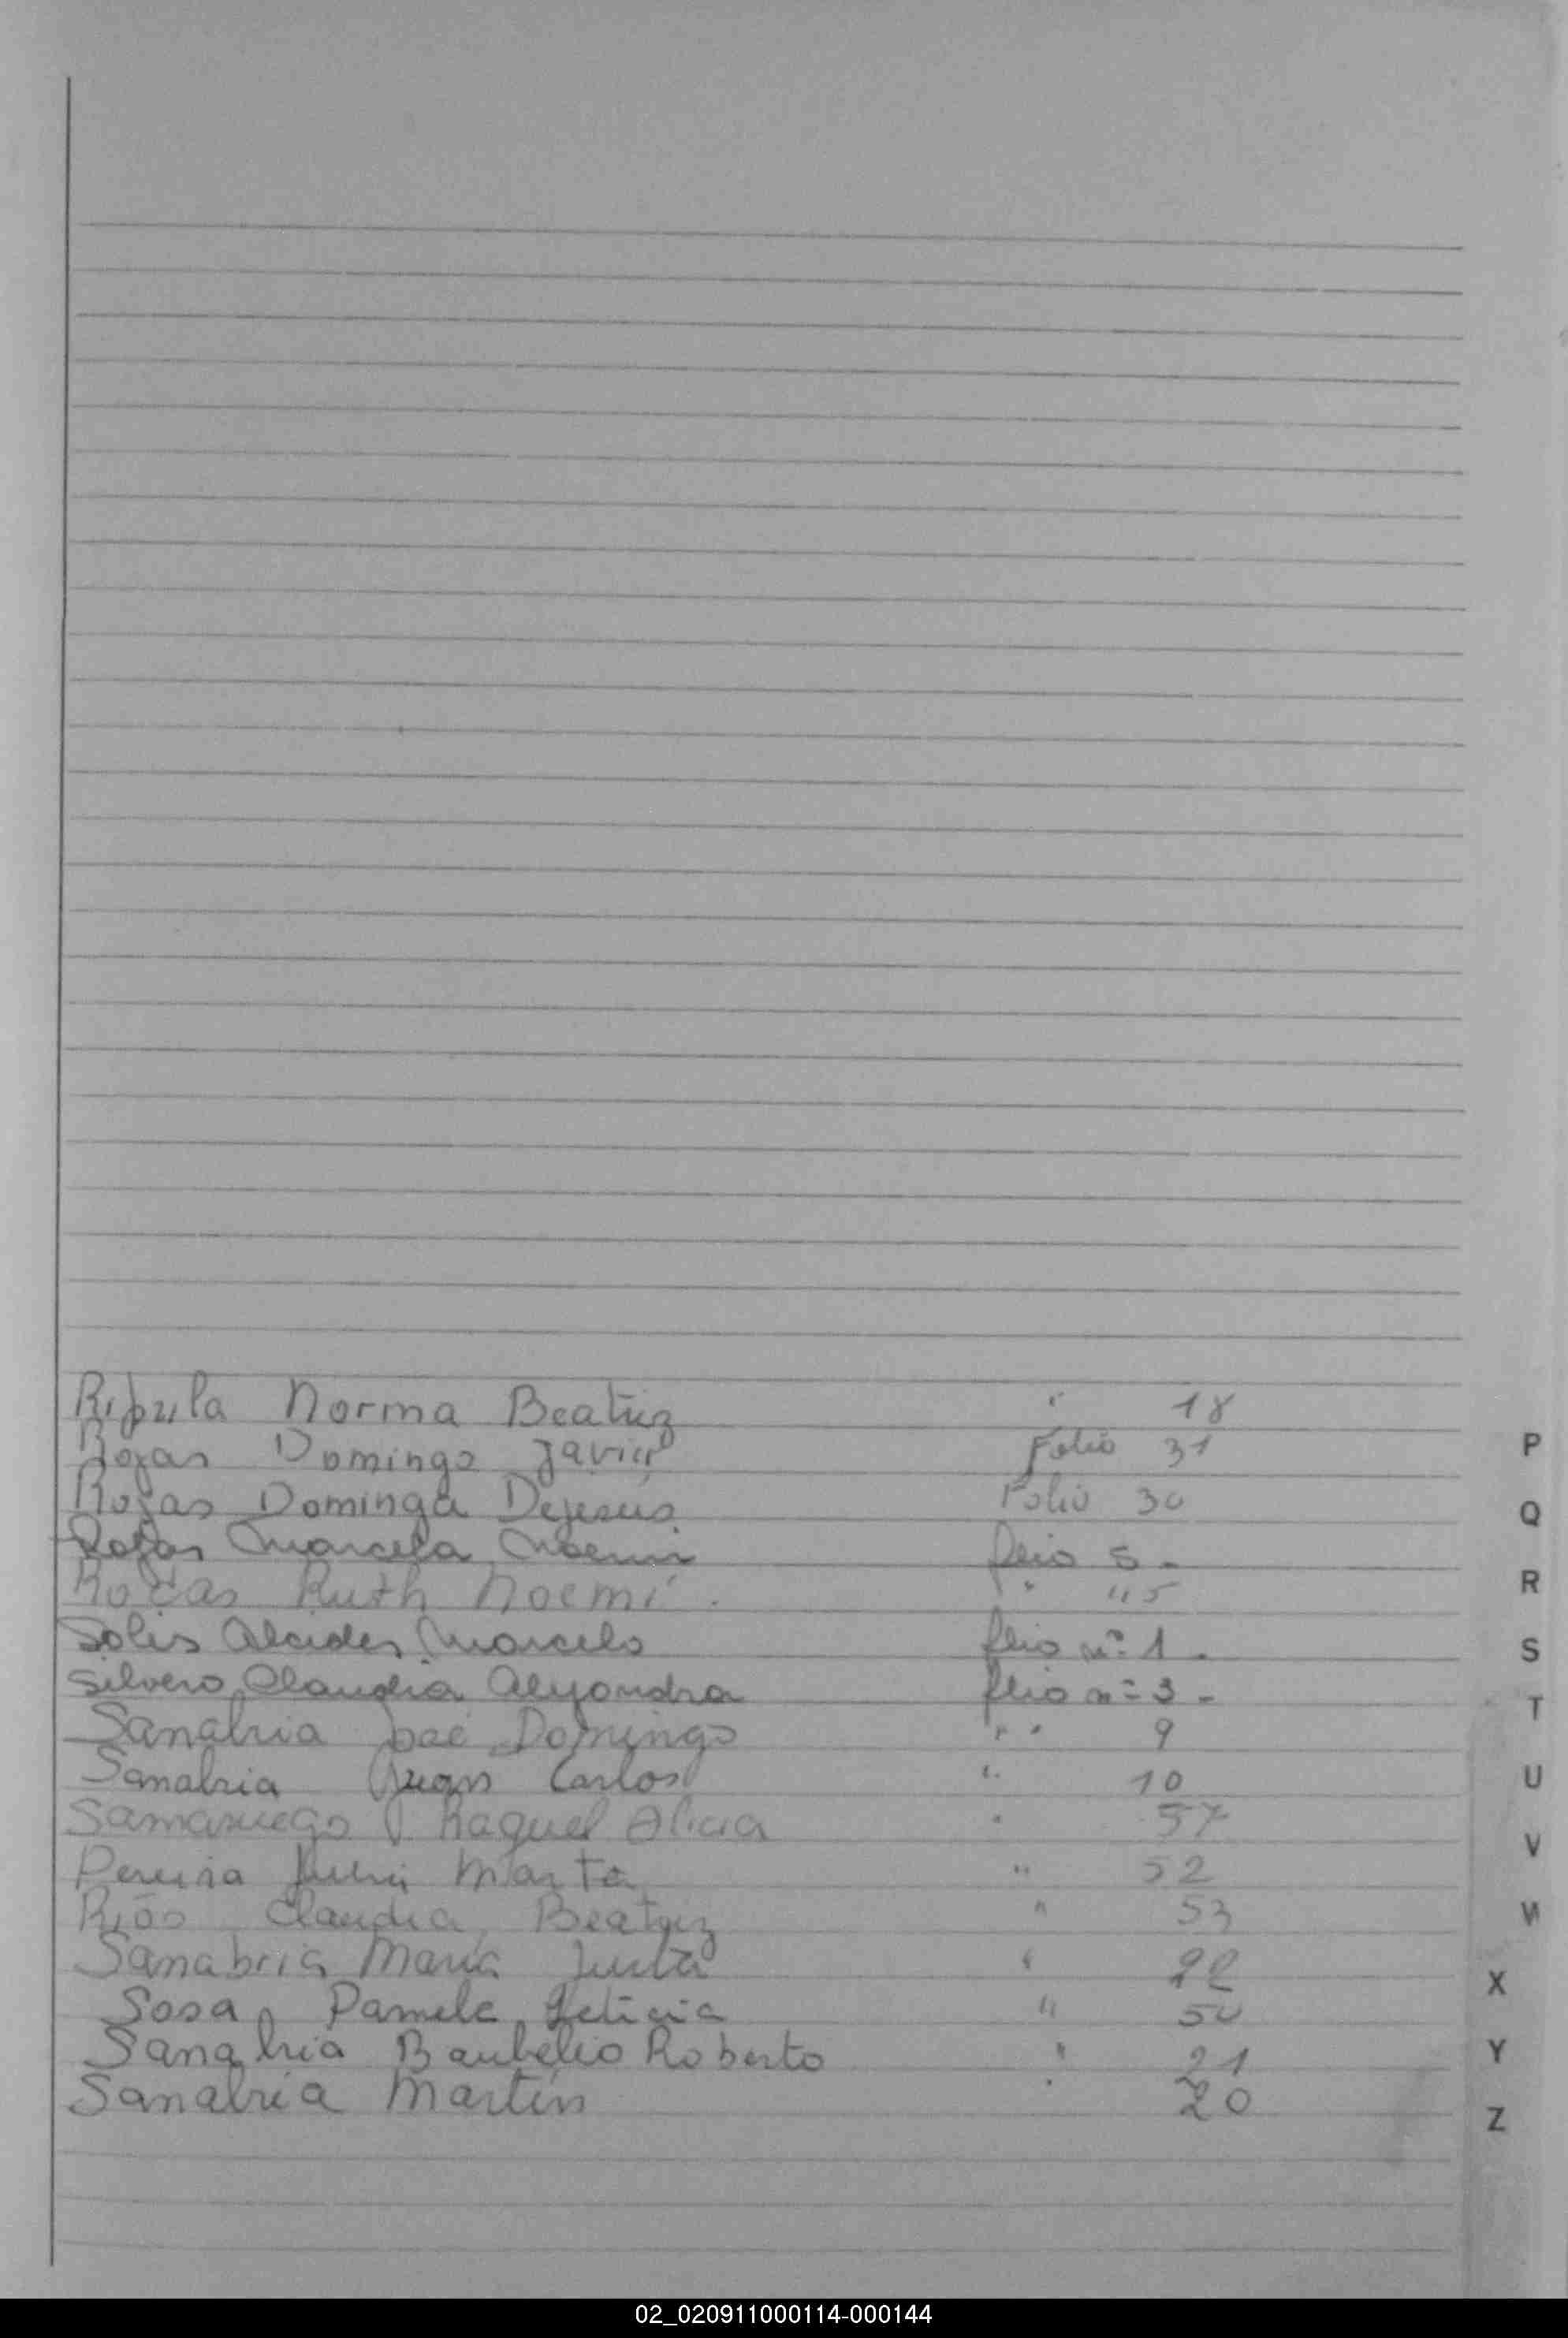 Ripula Norma Beatriz " 18
Rojas Domingo Javier Folio 31
Rojas Dominga Dejesús Folio 30
Rojas Marcela Noemi folio 5 -
Rojas Ruth Noemí . " 45
Solis Alcides Marcelo folio nº 1 .
Silvero Claudia Alejandra folio nº 3 -
Sanabria José Domingo " " 9
Sanabria Juan Carlos " 10
Samaniego Raquel Alicia " 57
Pereira Marta " 52
Ríos Claudia Beatriz " 53
Sanabria María Justa " 22
Sosa Pamela Leticia " 50
Sanabria Roberto " 21
Sanabria Martín " 20
P
Q
R
S
T
U
V
W
X
Y
Z
02_020911000114-000144